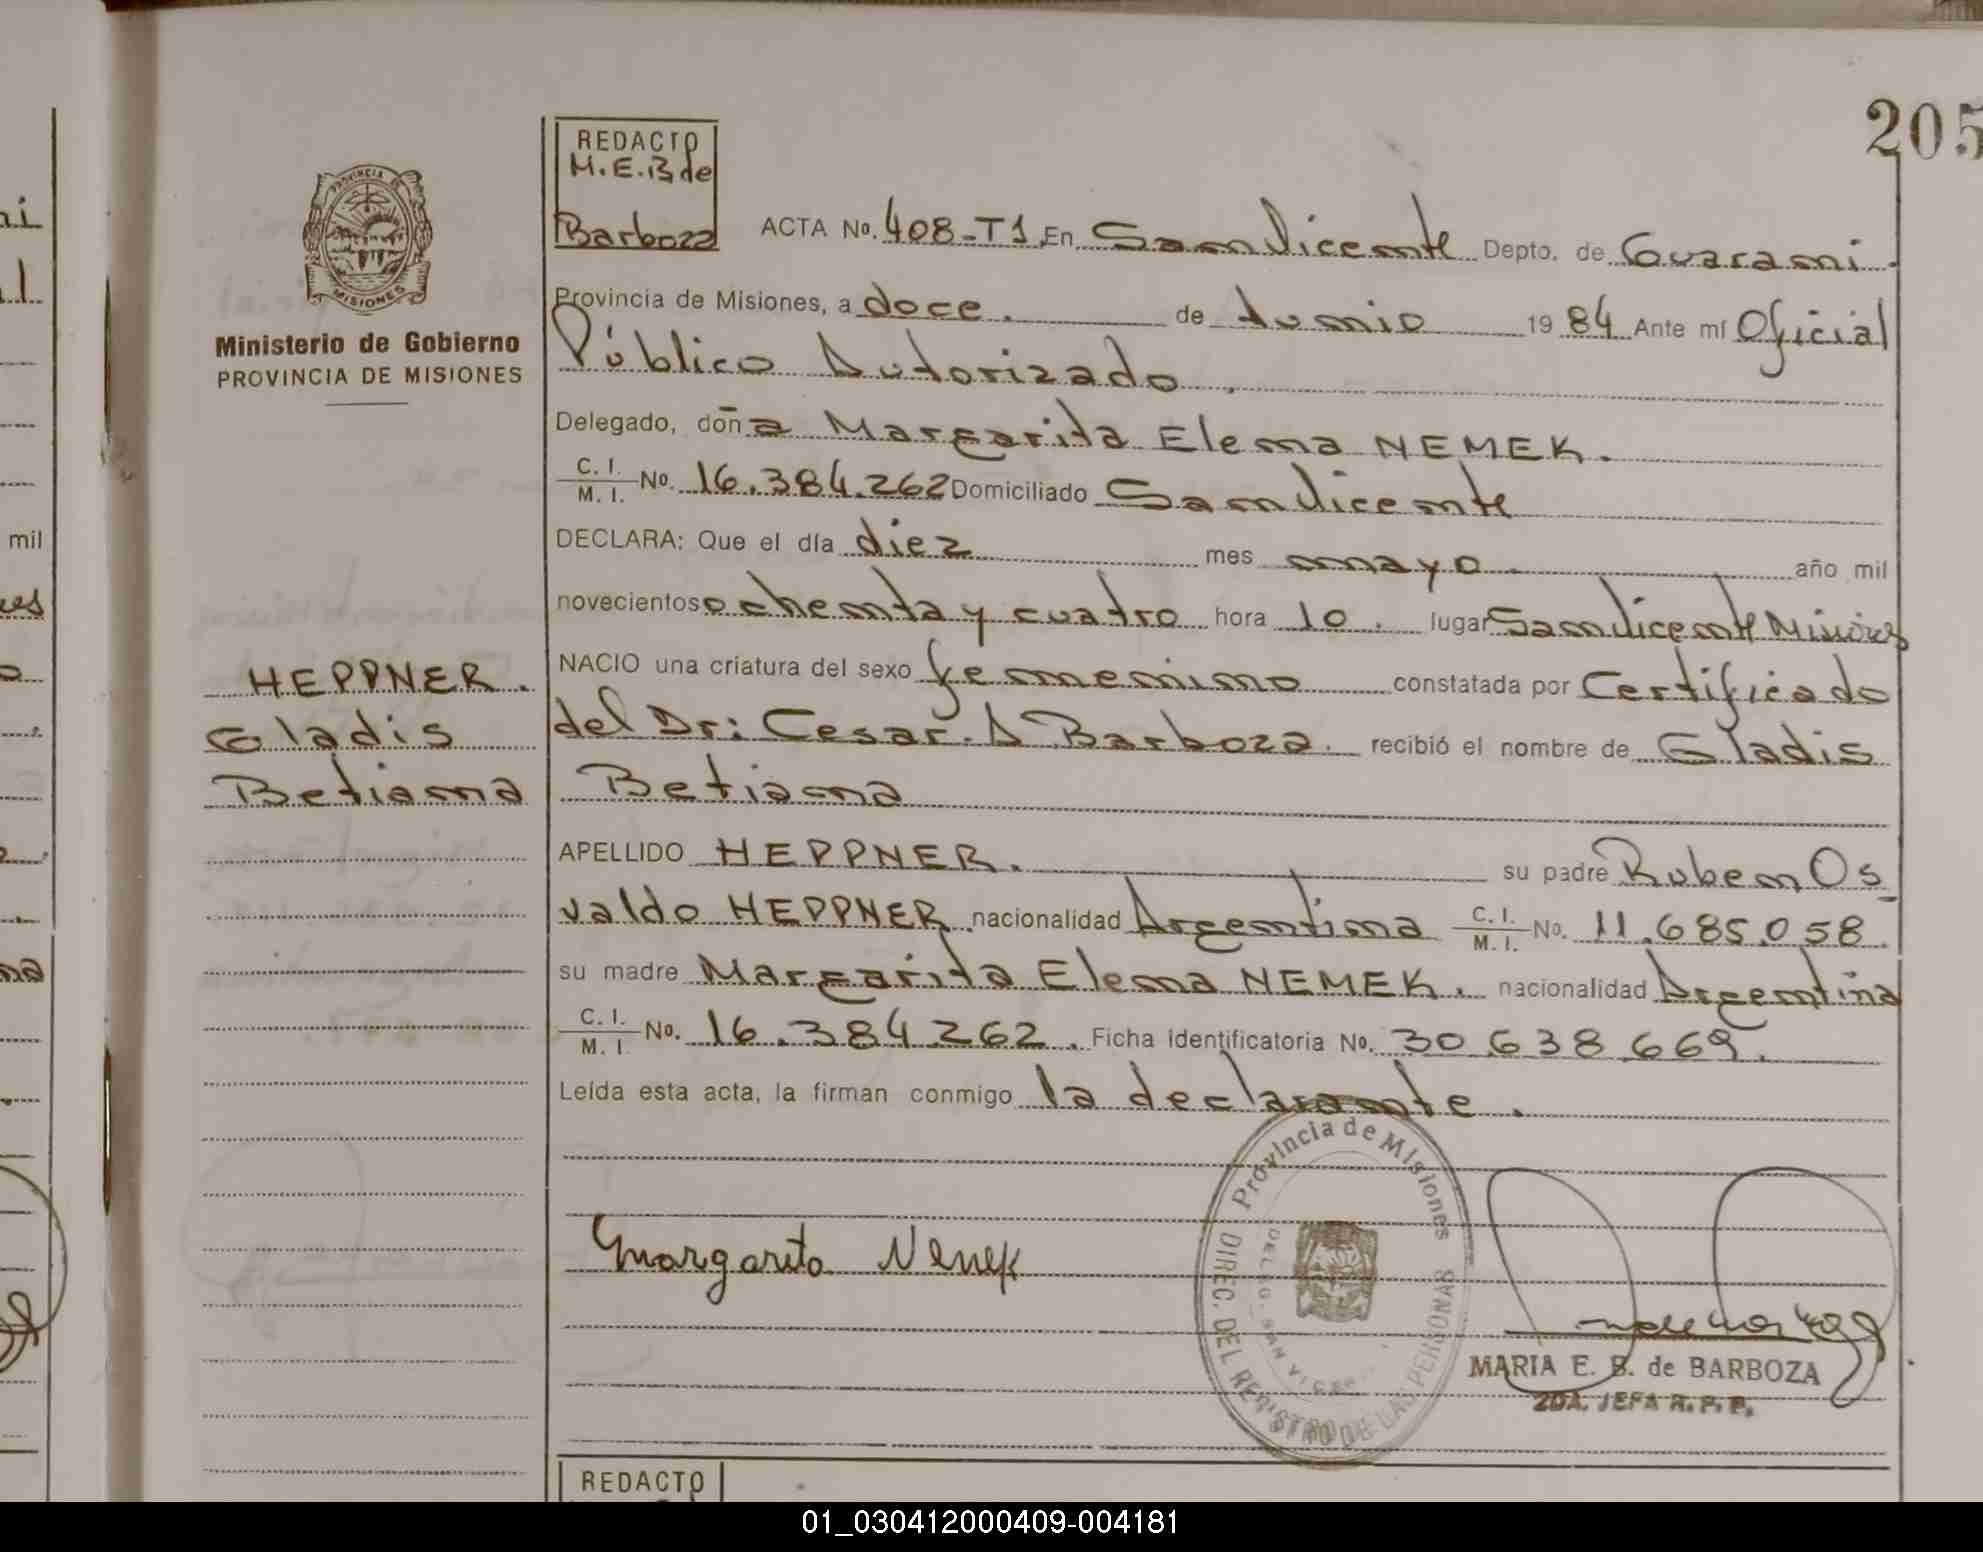 205
REDACTO
M.E.B de
Barboza
PROVINCIA DE
MISIONES
Ministerio de Gobierno
PROVINCIA DE MISIONES
ACTA No. 408-T1 En San Vicente Depto. de Guarani.
Provincia de Misiones, a doce. de Junio 19 84 Ante mí Oficial
Público Autorizado.
Delegado, doña Margarita Elena NEMEK.
C. I. M. I. No. 16.384.262 Domiciliado San Vicente
DECLARA: Que el día diez mes mayo. año mil
novecientos ochenta y cuatro hora 10. lugar San Vicente Misiones
NACIO una criatura del sexo femenino constatada por Certificado
del Dr: Cesar. A Barboza. recibió el nombre de Gladis
Betiana
APELLIDO HEPPNER. su padre Ruben Os
valdo HEPPNER nacionalidad Argentina C. I. M. I. No. 11.685.058
su madre Margarita Elena NEMEK. nacionalidad Argentina
C. I. M. I. No. 16.384.262. Ficha identificatoria No. 30.638.669.
Leída esta acta, la firman conmigo la declarante.
HEPPNER.
Gladis
Betiana
Margarita Nemek
Provincia de Misiones
DIREC. DEL REGISTRO DE LAS PERSONAS
DELEG. SAN VICEN
MARIA E. B. de BARBOZA
2DA. JEFA R. P. P.
REDACTO
mil
01_030412000409-004181